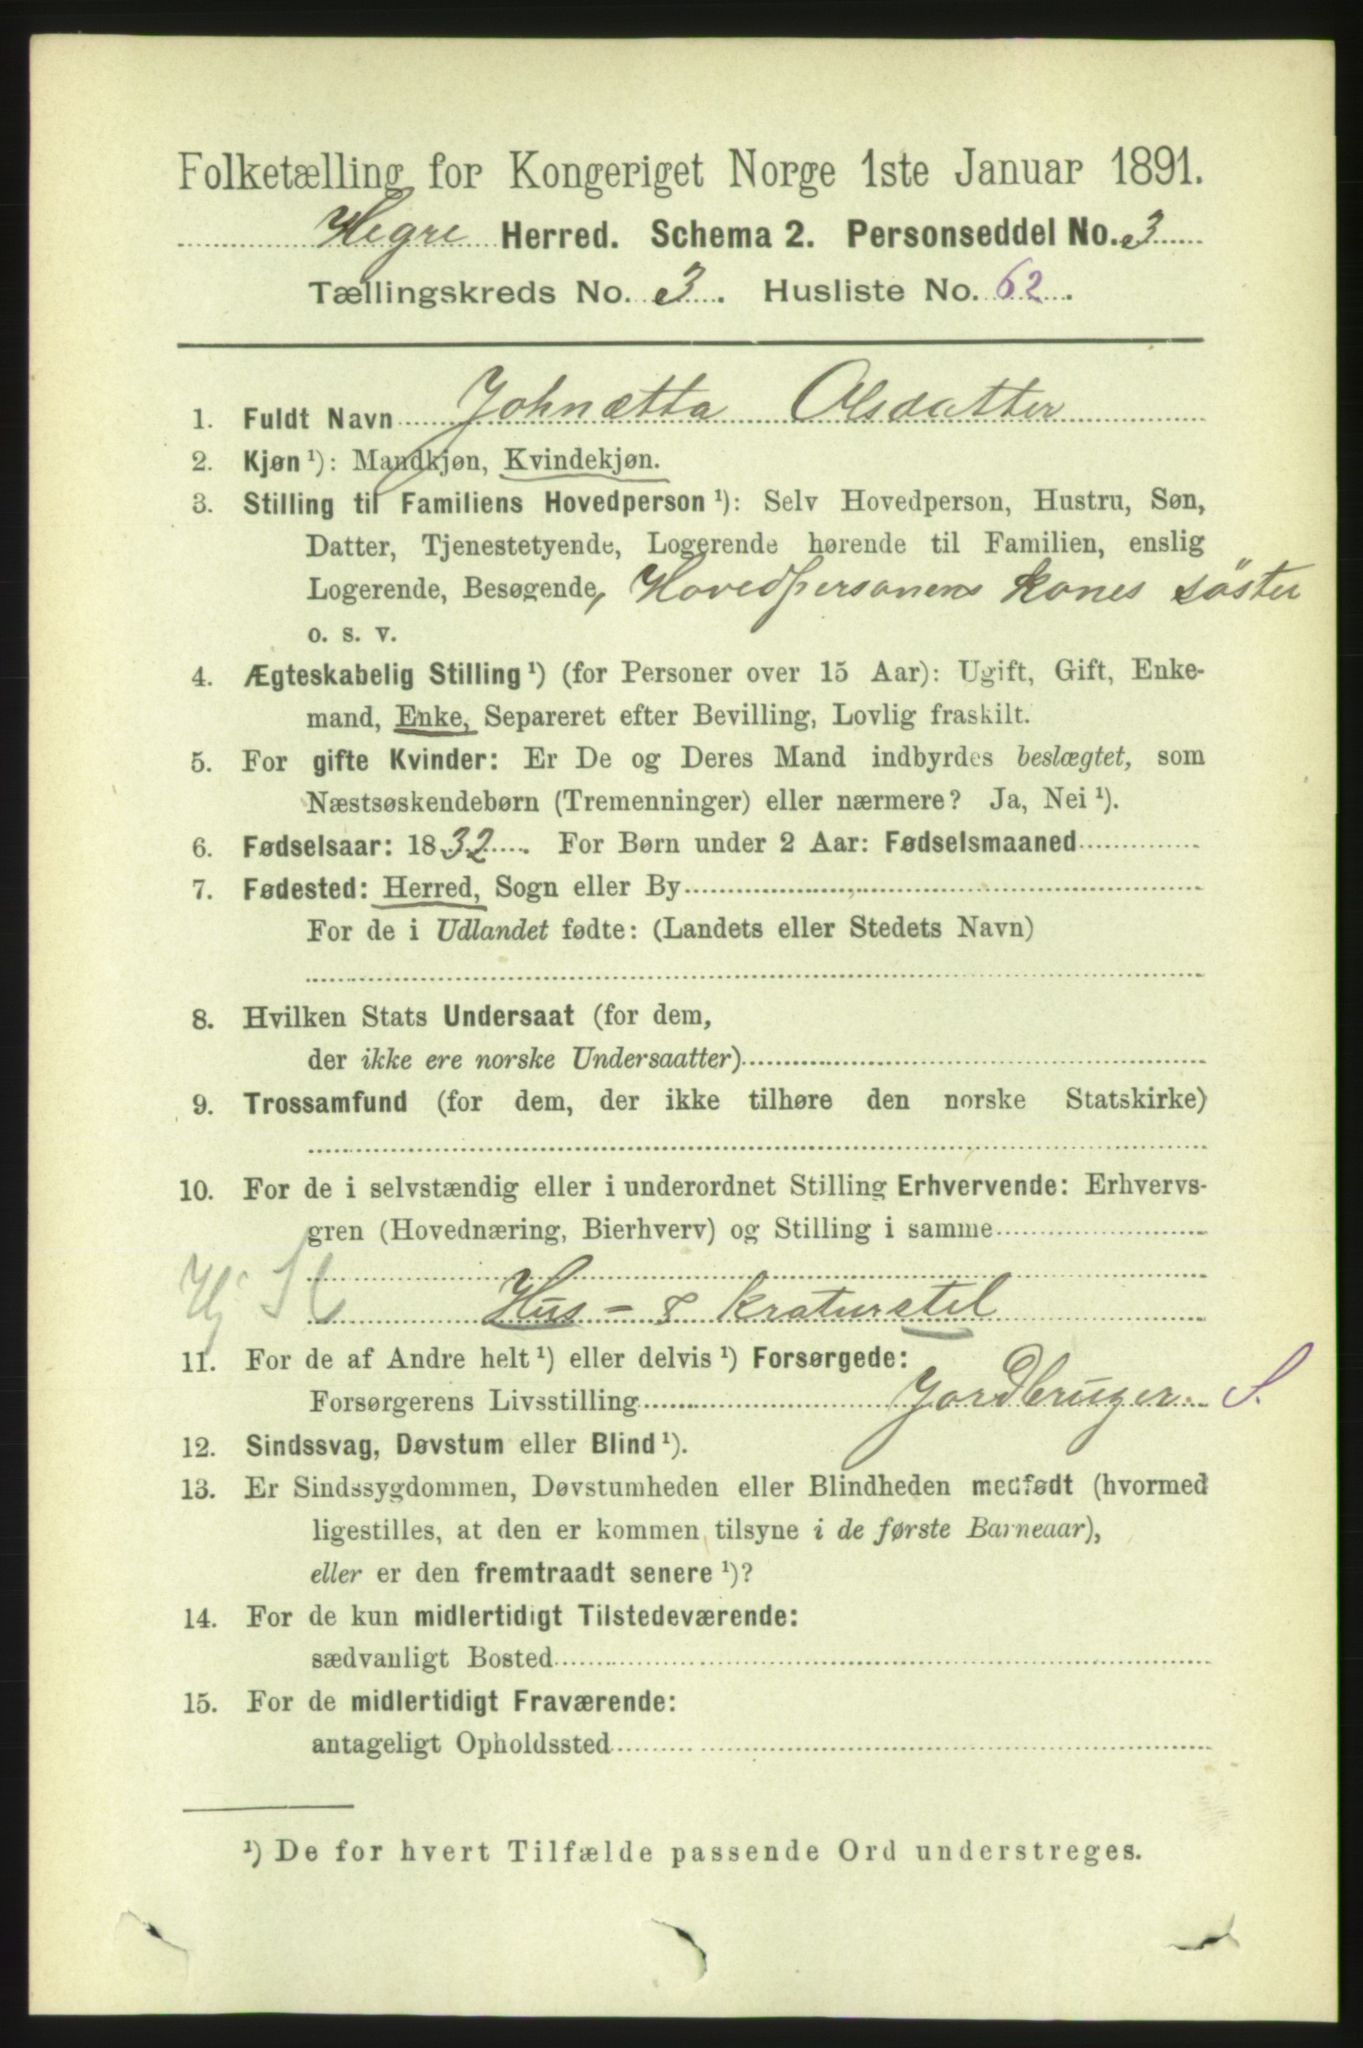 Folketælling for Kongeriget Norge 1ste Januar 1891.
Hegre Herred. Schema 2. Personseddel No. 3
Tællingskreds No. 3. Husliste No. 62.
1. Fuldt Navn Johnætta Olsdatter
2. Kjøn ¹): Mandkjøn, Kvindekjøn.
3. Stilling til Familiens Hovedperson ¹): Selv Hovedperson, Hustru, Søn,
Datter, Tjenestetyende, Logerende hørende til Familien, enslig
Logerende, Besøgende, Hovedpersonens kones söster
o. s. v.
4. Ægteskabelig Stilling ¹) (for Personer over 15 Aar): Ugift, Gift, Enke-
mand, Enke, Separeret efter Bevilling, Lovlig fraskilt.
5. For gifte Kvinder: Er De og Deres Mand indbyrdes beslægtet, som
Næstsøskendebørn (Tremenninger) eller nærmere? Ja, Nei ¹).
6. Fødselsaar: 1832. For Børn under 2 Aar: Fødselsmaaned
7. Fødested: Herred, Sogn eller By
For de i Udlandet fødte: (Landets eller Stedets Navn)
8. Hvilken Stats Undersaat (for dem,
der ikke ere norske Undersaatter)
9. Trossamfund (for dem, der ikke tilhøre den norske Statskirke)
10. For de i selvstændig eller i underordnet Stilling Erhvervende: Erhvervs-
gren (Hovednæring, Bierhverv) og Stilling i samme
Hus- & kraturstel
11. For de af Andre helt ¹) eller delvis ¹) Forsørgede:
Forsørgerens Livsstilling Jordbruger. S.
12. Sindssvag, Døvstum eller Blind ¹).
13. Er Sindssygdommen, Døvstumheden eller Blindheden medfødt (hvormed
ligestilles, at den er kommen tilsyne i de første Barneaar),
eller er den fremtraadt senere ¹)?
14. For de kun midlertidigt Tilstedeværende:
sædvanligt Bosted
15. For de midlertidigt Fraværende:
antageligt Opholdssted
¹) De for hvert Tilfælde passende Ord understreges.